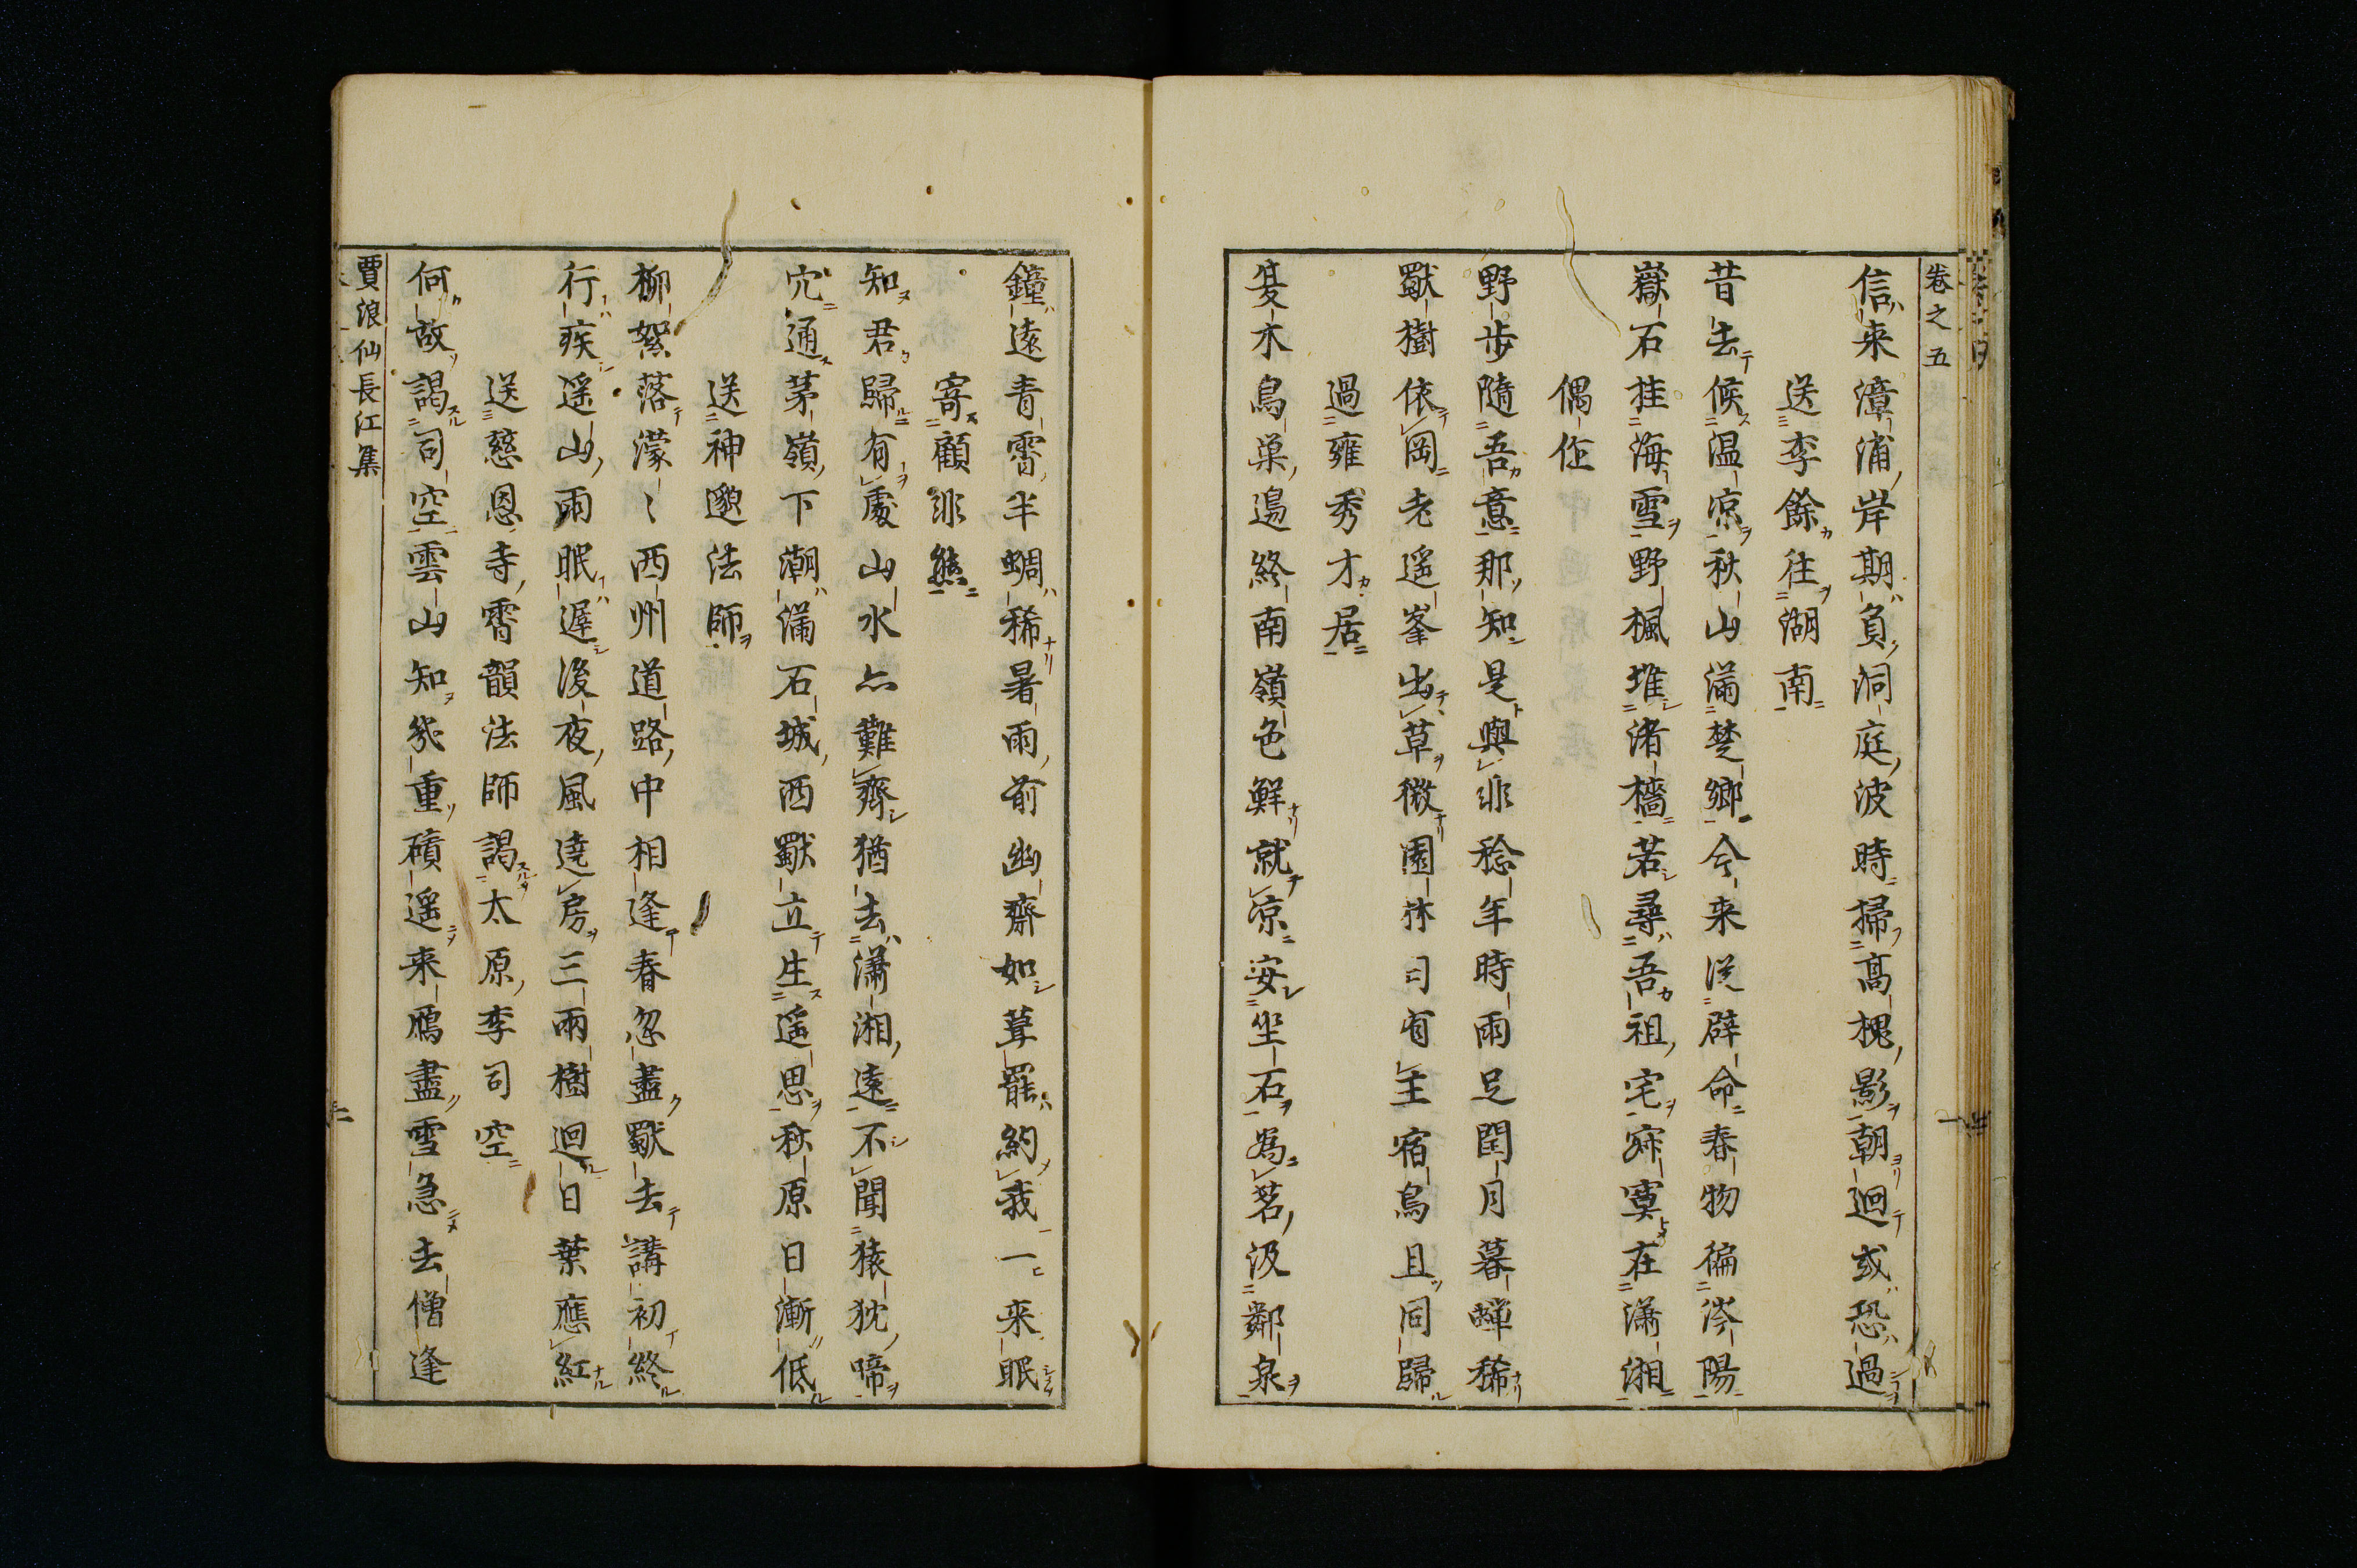 卷之五
信来漳浦岸期負洞庭波時掃髙槐影朝迴或恐過
送李餘往湖南
昔去候温凉秋山滿楚鄉今来従辟命春物徧涔陽
嶽石挂海雪野楓堆渚檣若尋吾祖宅寂寞在瀟湘
偶作
野歩隨吾意那知是與非稔年時雨足閏月暮蟬稀
獸樹依岡老遥峯出草微園林自有主宿鳥且同歸
過雍秀才居
夏木鳥巢邊終南嶺色鮮就凉安坐石為茗汲鄰泉
鐘遠青霄半蜩稀暑雨前幽齋如葺罷約我一来眠
寄顧非熊
知君歸有處山水亦難齊猶去瀟湘遠不聞猿狖啼
穴通茅嶺下潮滿石城西獸立生遥思秋原日漸低
送神邈法師
柳絮落濛〻西州道路中相逢春忽盡獸去講初終
行疾遥山雨眠遲後夜風遶房三兩樹迴日葉應紅
送慈恩寺霄韻法師謁太原李司空
何故謁司空雲山知幾重磧遥来鴈盡雪急去僧逢
賈浪仙長江集